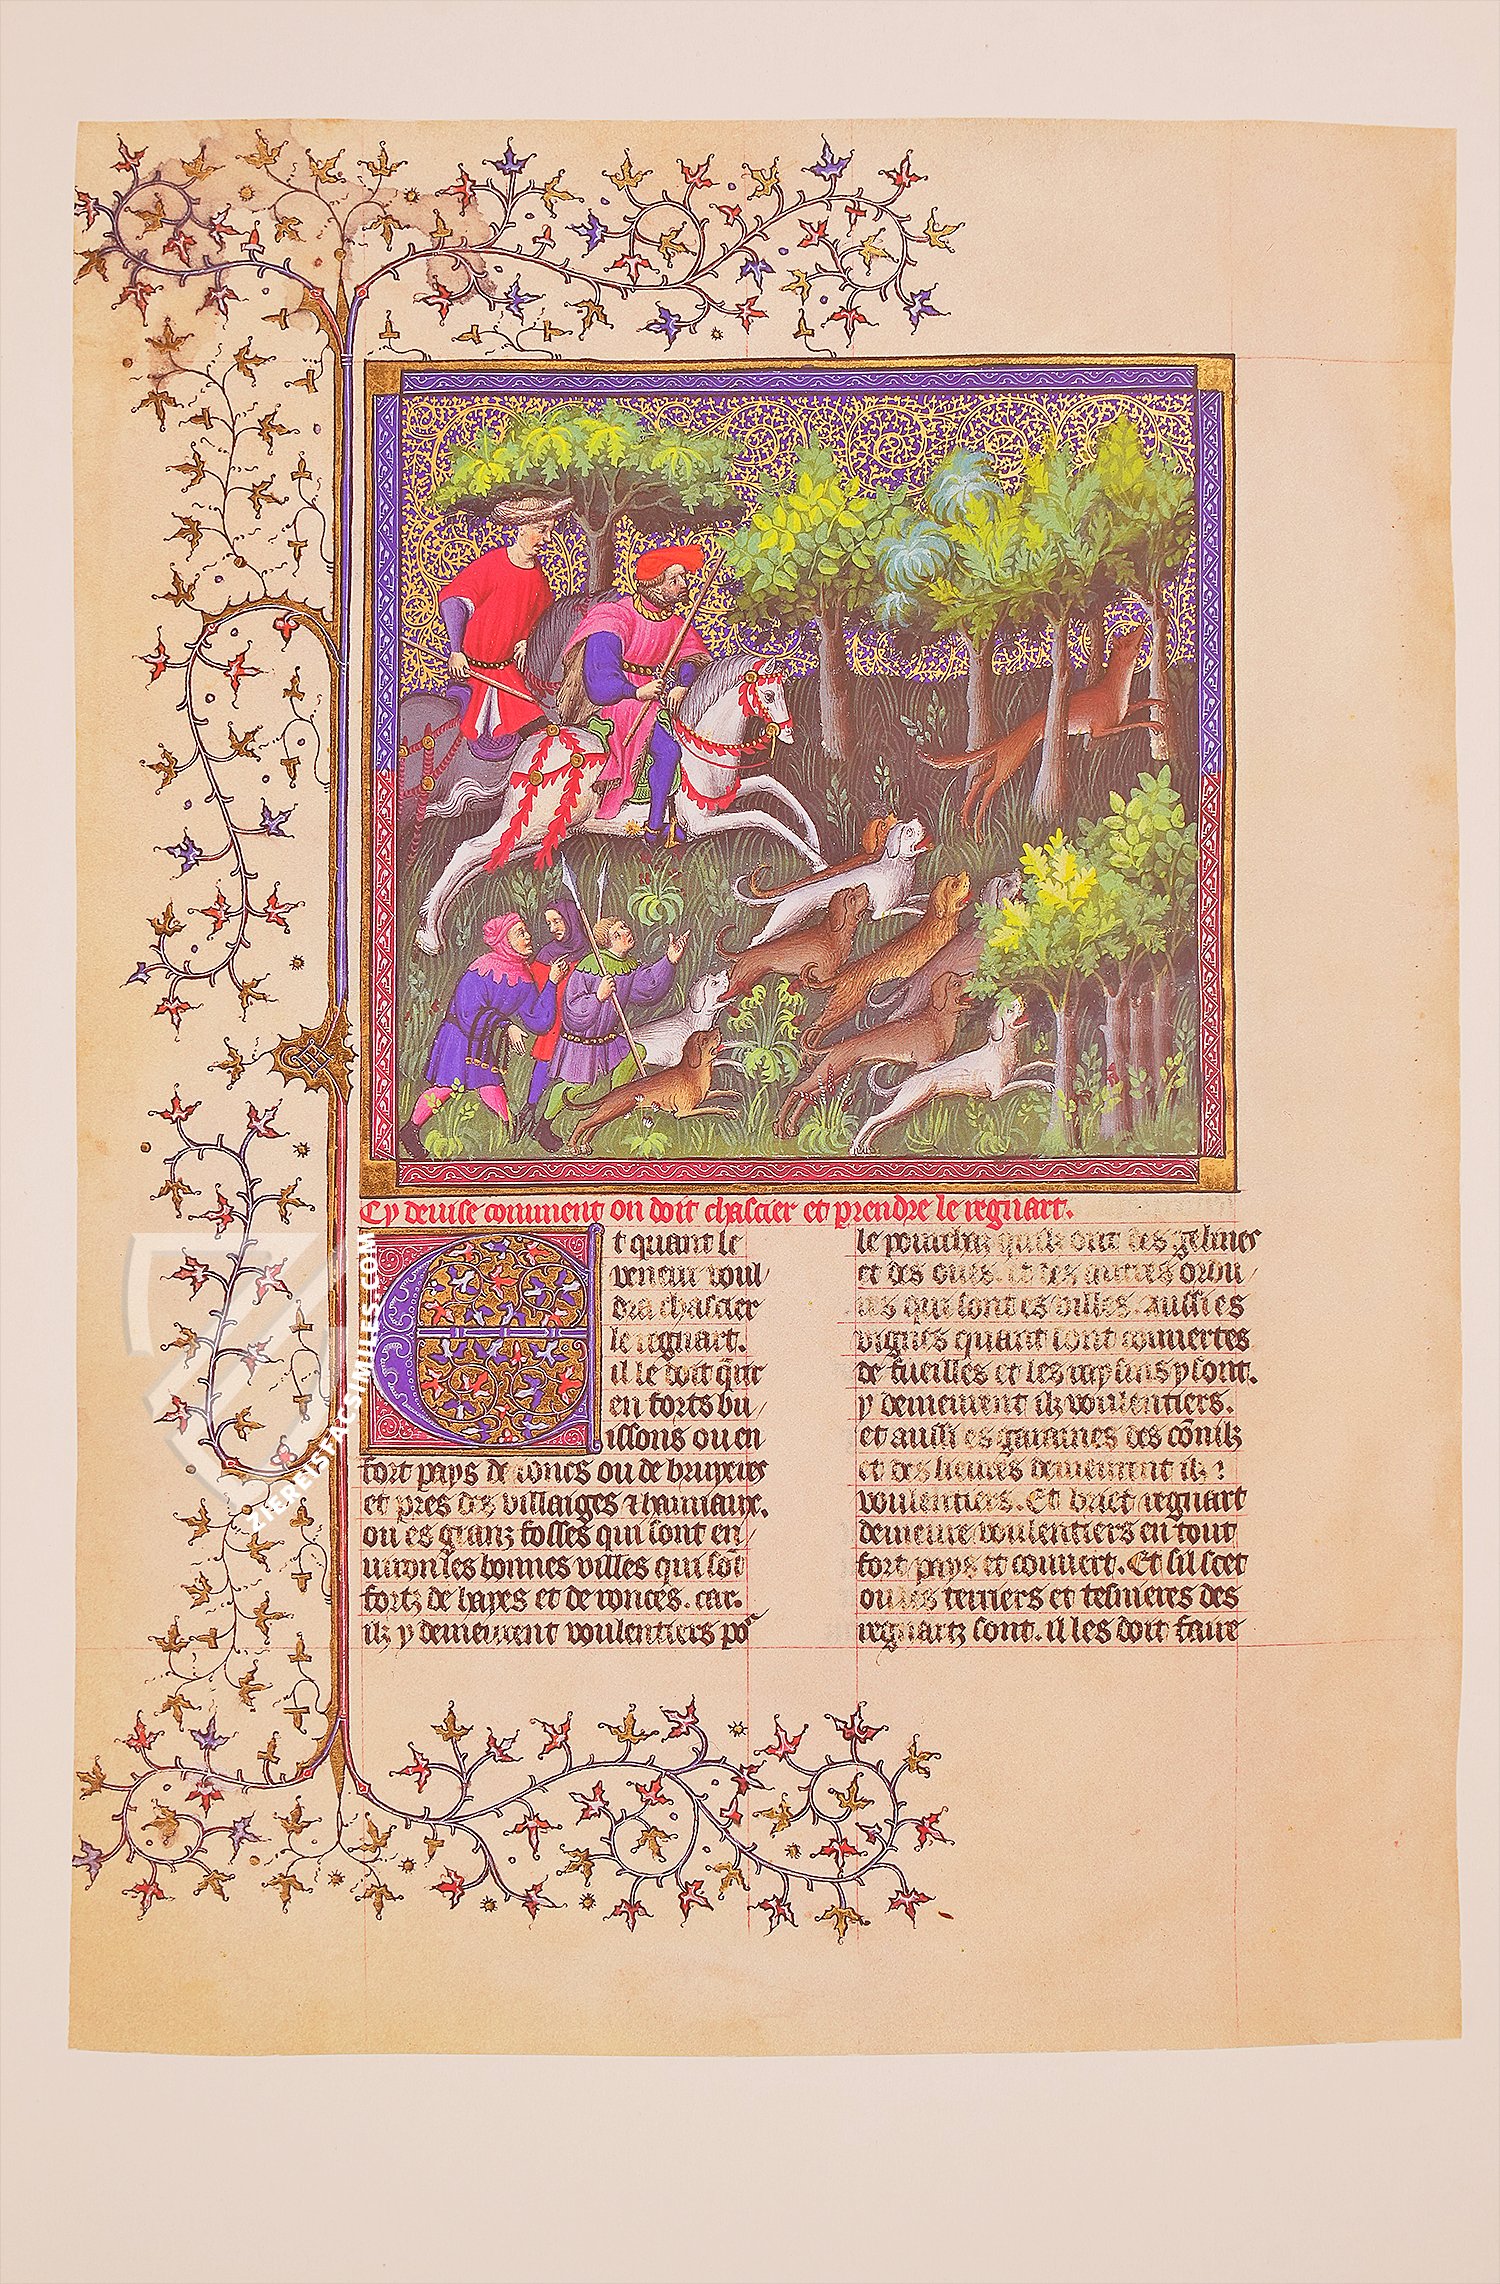 Cy deuise comment on doit chascier et prendre le regnart.
Et quant le
veneur voul/
dra chascier
le regnart.
il le doit q̃rir
en forts bu/
issons ou en
fort pays de ronces ou de bruyeres
et pres des villaiges & hamiaux.
ou es granz fosses qui sont en/
uiron les bonnes villes qui sõt
fortz de hayes et de ronces. car.
ilz y demeurent voulentiers po̾
le pourchaz quilz ont des gelines
et des oues. et des autres oyou/
qui sont es villes. Aussi es
vignes quant sont couuertes
de fueilles et les raysins y sont.
y demeurent ilz voulentiers.
et aussi es garannes des cõnilz
et des lieures demeurent ilz
voulentiers. Et brief regnart
demeure voulentiers en tout
fort pays et couuert. Et sil scet
ou les terriers et tesnieres des
regnartz sont. il les doit faire
ZIEREISFACSIMILES.COM